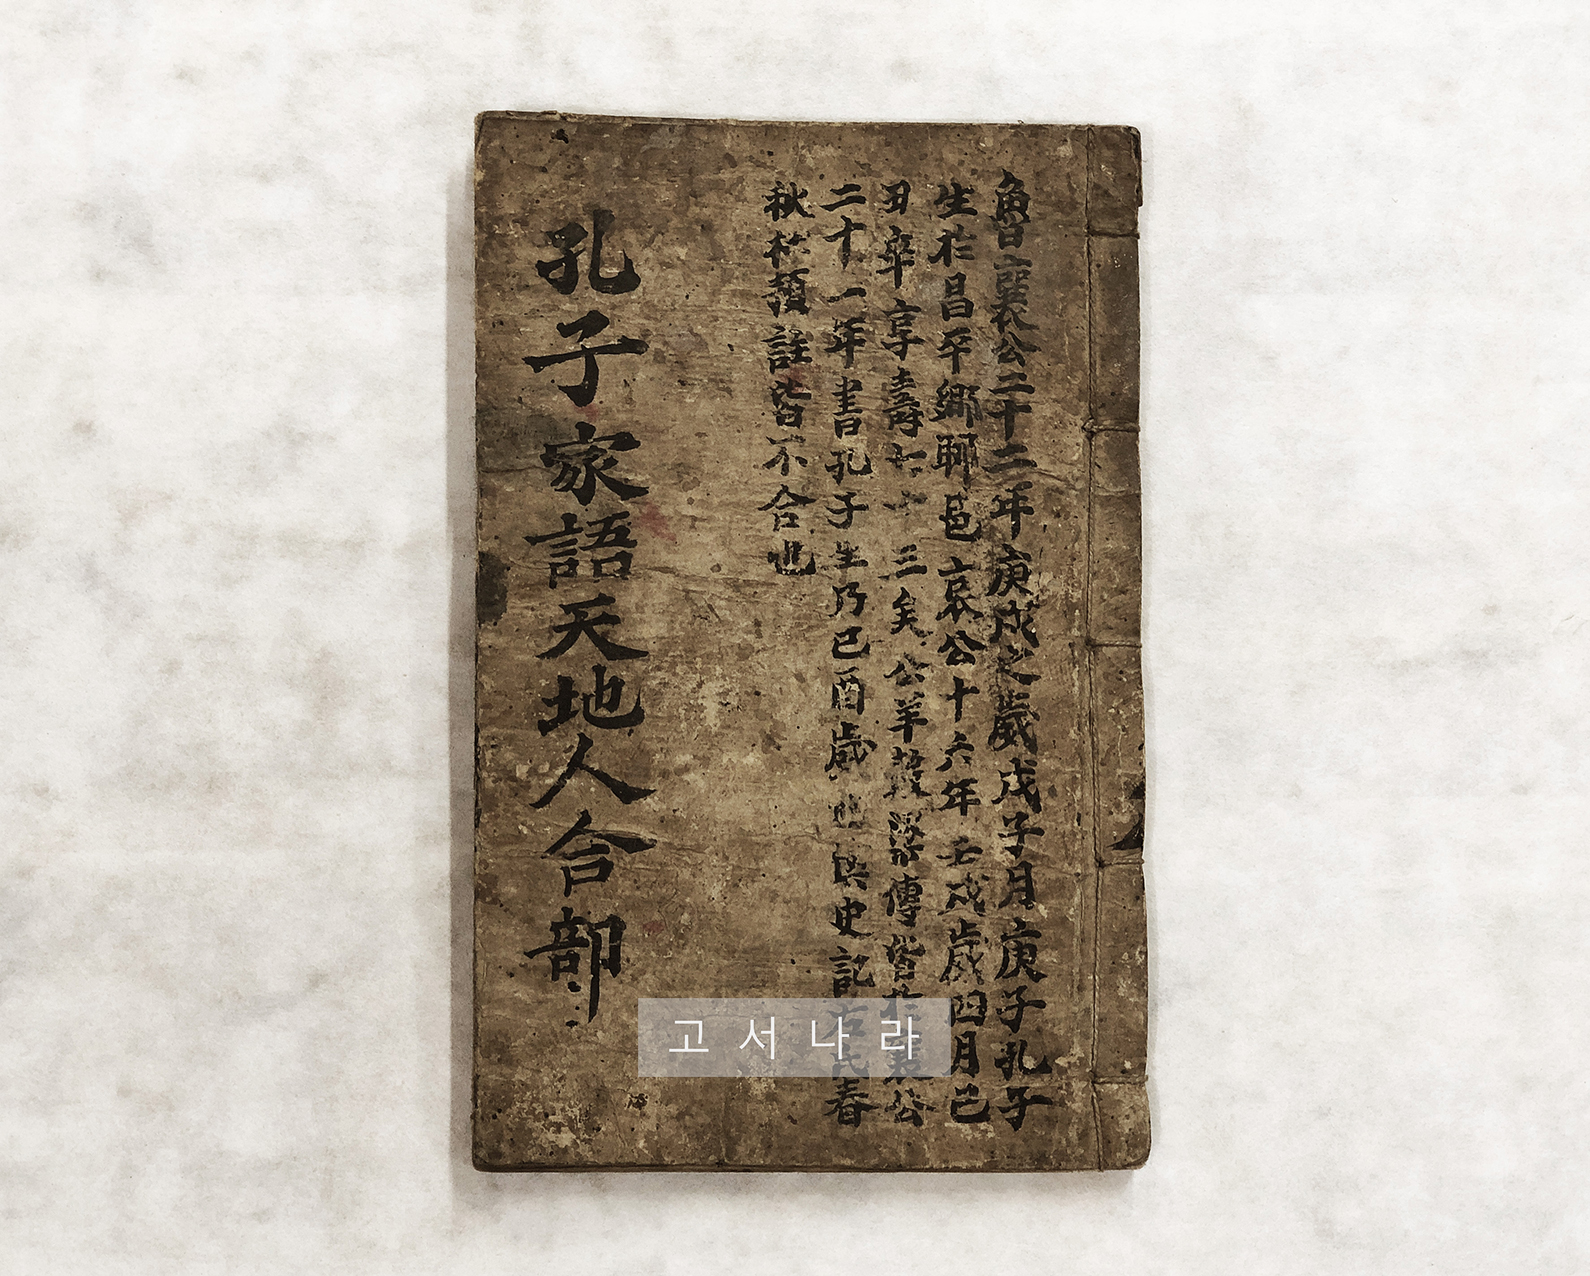 魯襄公二十二年庚戌之歲戊子月庚子孔子
生於昌平鄉鄹邑哀公十六年壬戌歲四月己
丑卒享壽七十三矣公羊穀梁傳皆於襄公
二十一年書孔子生乃己酉歲也與史記左氏春
秋杜預註皆不合也
孔子家語天地人合部
고서나라